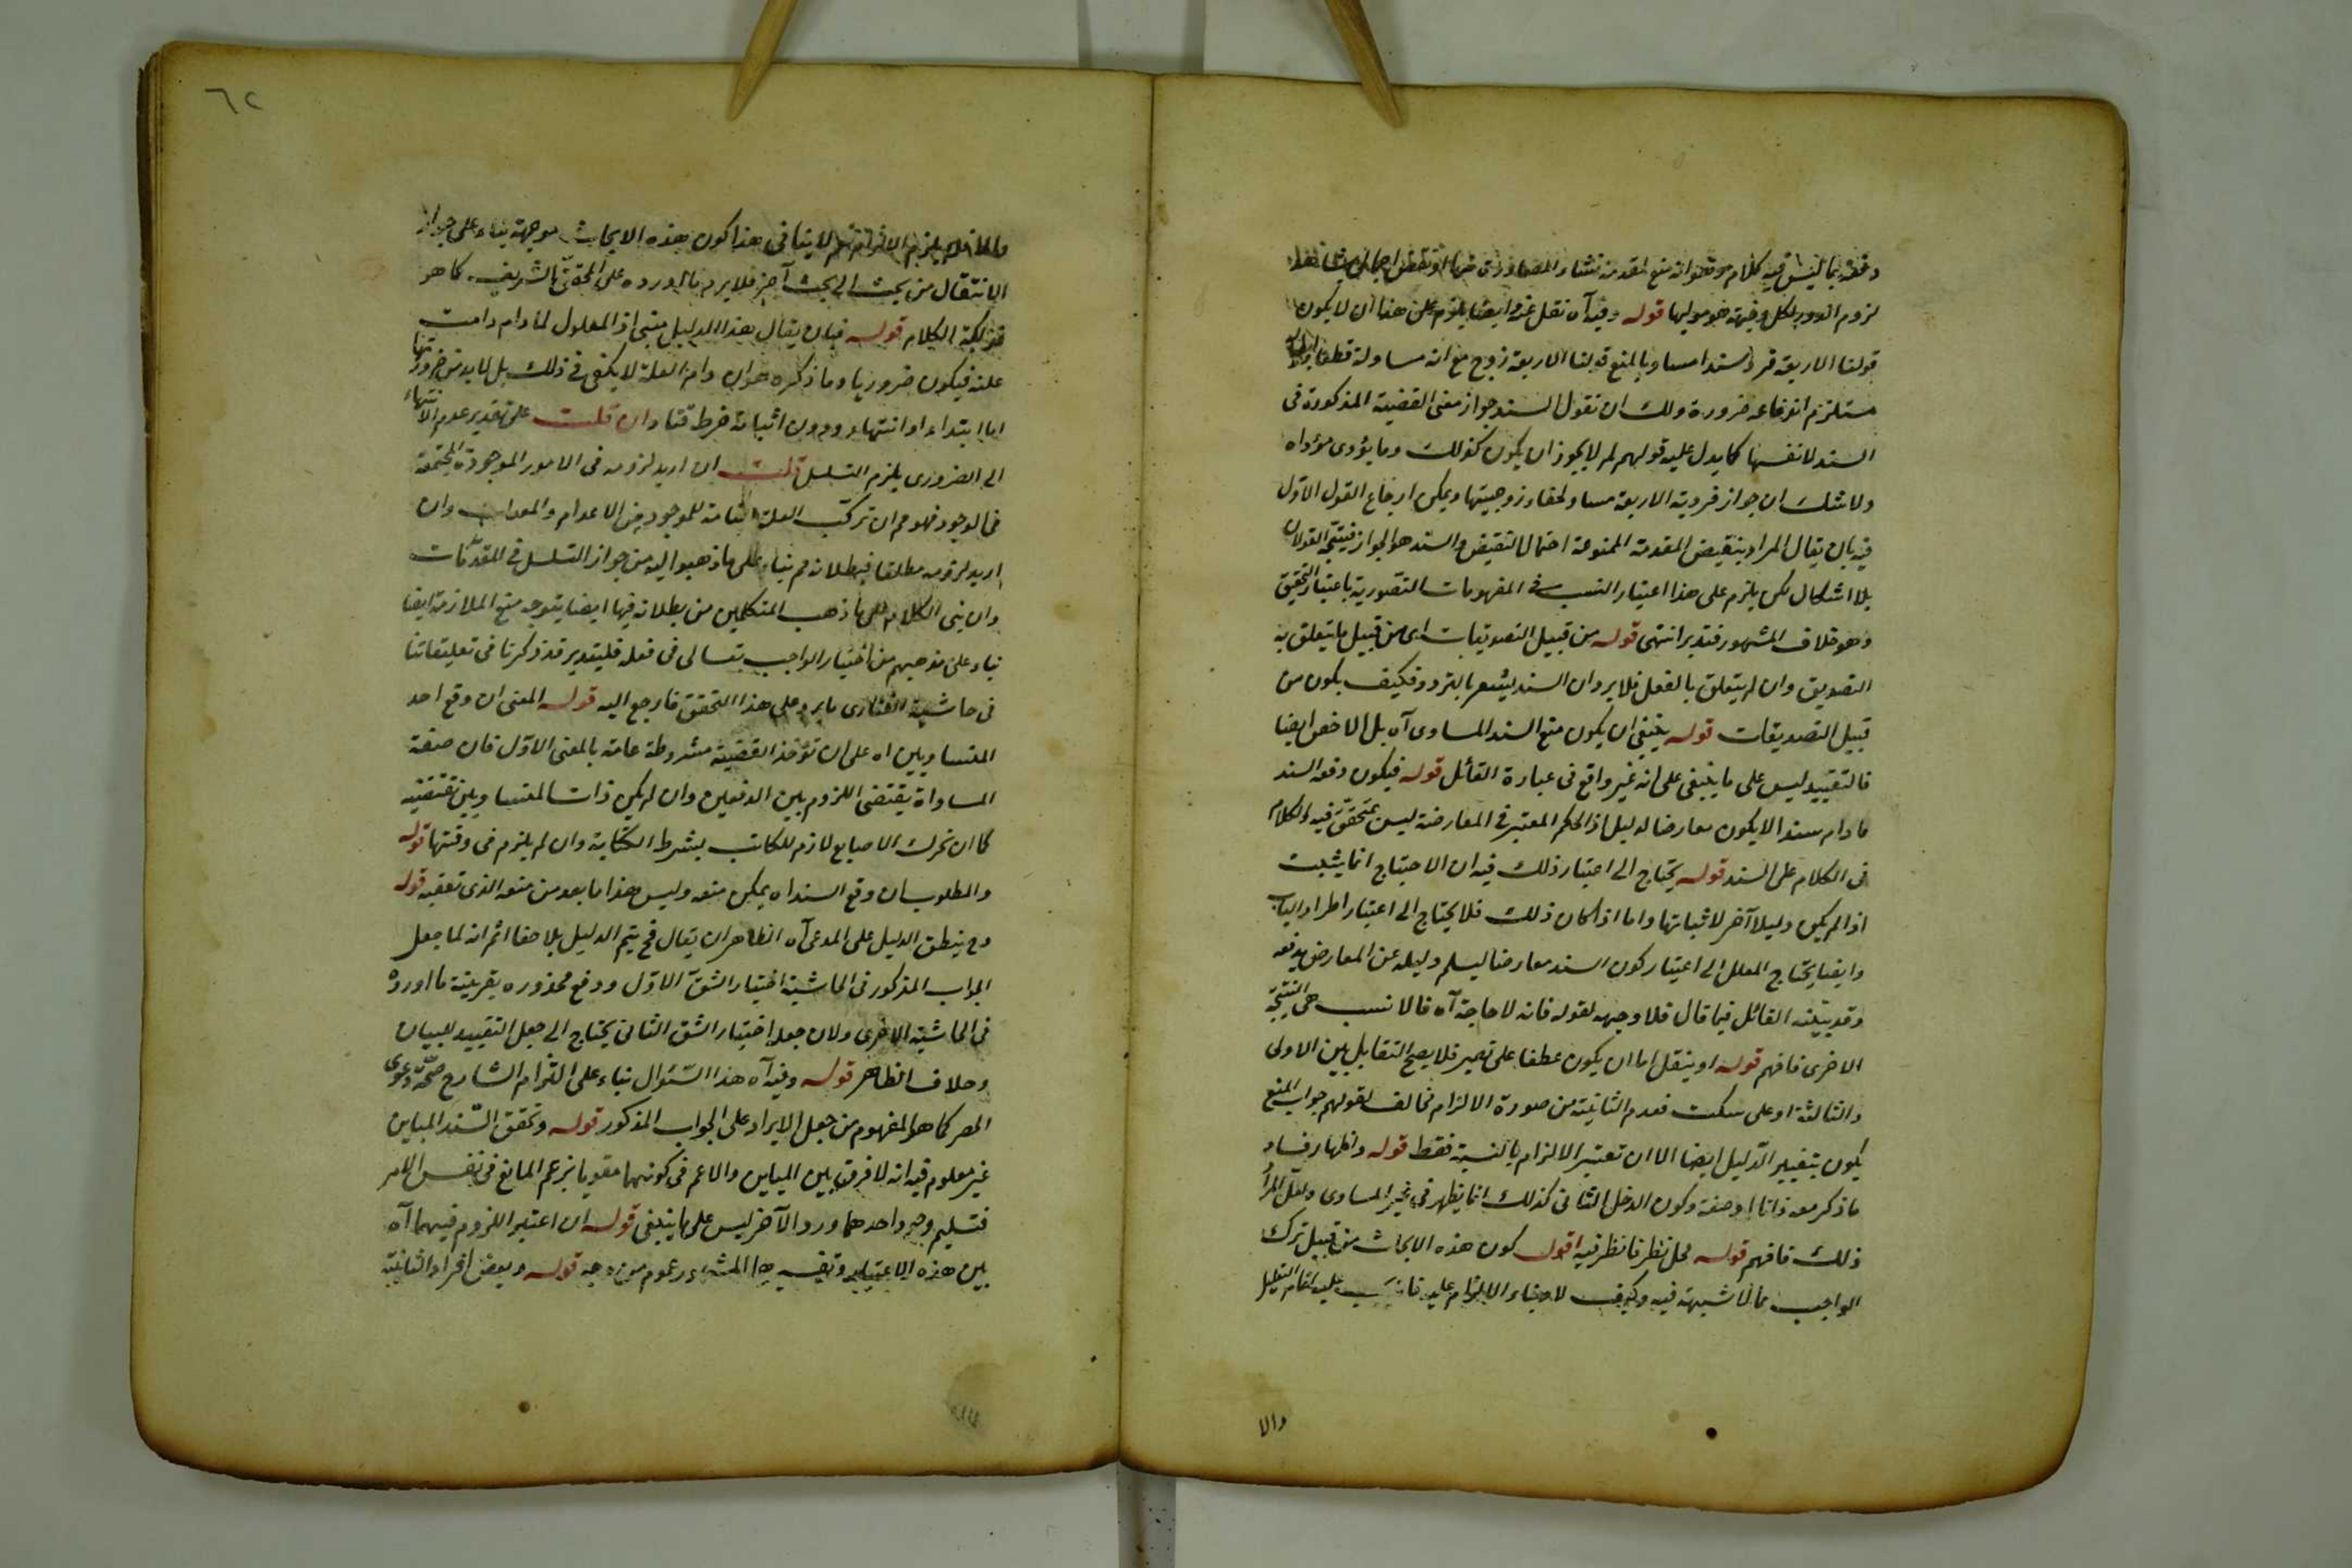 دفعه بما ليس فيه كلام وهو انه منع لمقدمة
لزوم الدور لكل وجهة هو موليها قوله وفيه آه نقل عنه وايضا يلزم على هذا ان لا يكون
قولنا الاربعة فرد سندا مساويا لمنع قولنا الاربعة زوج مع انه مساو له قطعا
مستلزم انتفاءه ضرورة ولك ان تقول السند جواز معنى القضية المذكورة فى
السند لا نفسها كما يدل عليه قولهم لم لا يجوز ان يكون كذلك وما يؤدى مؤداه
ولا شك ان جواز فردية الاربعة مساو لخفاء زوجيتها ويمكن ارجاع القول الاول
فيه بان يقال المراد بنقيض المقدمة الممنوعة احتمال النقيض والسند هو الجواز فيتجه القولان
بلا اشكال لكن يلزم على هذا اعتبار النسب فى المفهومات التصورية باعتبار التحقيق
وهو خلاف المشهور فتدبر انتهى قوله من قبيل التصديقات اى من قبيل ما يتعلق به
التصديق وان لم يتعلق بالفعل فلا يرد ان السند يشعر بالتردد فكيف يكون من
قبيل التصديقات قوله ينبغى ان يكون منع السند المساوى آه بل الاخص ايضا
فالتقييد ليس على ما ينبغى على انه غير واقع فى عبارة القائل قوله فيكون دفعه السند
ما دام سندا لا يكون معارضا لدليل اذ الحكم المعتبر فى المعارضة ليس بمتحقق فيه والكلام
فى الكلام على السند قوله يحتاج الى اعتبار ذلك فيه ان الاحتياج انما يثبت
اذا لم يكن دليلا آخر لاثباتها واما اذا كان ذلك فلا يحتاج الى اعتبار اطراد الباب
وايضا يحتاج المعلل الى اعتبار كون السند معارضا ليسلم دليله عن المعارض بدفعه
وقد بينه القائل فيما قال فلا وجه لقوله فانه لا حاجة آه فالانسب هى النتيجة
الاخرى فافهم قوله او ينتقل اما ان يكون عطفا على تغيير فلا يصح التقابل بين الاولى
والثالثة او على سكت فعدم الثانية من صورة الالزام مخالف لقولهم جواب المنع
يكون بتغيير الدليل ايضا الا ان تعتبر الالزام بالنسبة فقط قوله واظهار فساد
ما ذكر معه ذاتا او صفة وكون الدخل الثانى كذلك انما يظهر فى غير المساوى ولعل المراد
ذلك فافهم قوله محل نظر فانظر فيه اقول كون هذه الابحاث من قبيل ترك
الواجب مما لا شبهة فيه وكيف لا وبناء الالتزام عليه
والا

٦٢
لا ينافى هذا كون هذه الابحاث موجهة بناء على جواز
الانتقال من بحث الى بحث آخر فلا يرد ما اورده على المحقق الشريف كما هو
الكلام قوله فبان يقال هذا الدليل مبنى اذ المعلول لما دام دامت
علته فيكون ضروريا وما ذكره هو ان دام العلة لا يكفى فى ذلك بل لا بد من ضرورتها
اما ابتداء او انتهاء ودون اثباته خرط قتاد وان قلت على تقدير عدم الانتهاء
الى الضرورى يلزم التسلسل قلت ان اريد لزومه فى الامور الموجودة المجتمعة
فى الوجود فهو مم ان تركب العلة التامة للموجود من الاعدام والمعدات وان
اريد لزومه مطلقا فبطلانه مم بناء على ما ذهبوا اليه من جواز التسلسل فى المعدات
وان بنى الكلام على ما ذهب المتكلمين من بطلانه فيها ايضا يتوجه منع الملازمة ايضا
بناء على مذهبهم من اختيار الواجب تعالى فى فعله فليتدبر قد ذكرنا فى تعليقاتنا
فى حاشية الفنارى ما يرد على هذا التحقق فارجع اليه قوله المعنى ان وقع احد
المتساويين اه على ان تؤخذ القضية مشروطة عامة بالمعنى الاول فان صفة
المساواة يقتضى اللزوم بين الدفعين وان لم يكن ذات المتساويين تقتضيه
كما ان تحرك الاصابع لازم للكاتب بشرط الكتابة وان لم يلزم فى وقتها قوله
والمطلوب ان وقع السند اه يمكن منعه وليس هذا ما بعد من منعه الذى تعقبه قوله
وح ينطبق الدليل على المدعى آه الظاهر ان يقال فح يتم الدليل بلا خفاء ثم انه لما جعل
الجواب المذكور فى الحاشية اختيار الشق الاول ودفع محذوره بقرينة ما اورده
فى الحاشية الاخرى ولان جعله اختيار الشق الثانى يحتاج الى جعل التقييد للبيان
وخلاف الظاهر قوله وفيه آه هذا السؤال بناء على التزام الشارح صحة دعوى
المصر كما هو المفهوم من جعل الايراد على الجواب المذكور قوله وتحقق السند المباين
غير معلوم فيه انه لا فرق بين المباين والاعم فى كونهما مقويا بزعم المانع فى نفس الامر
فتسليم وجه واحدهما ورد الآخر ليس على ما ينبغى قوله ان اعتبر اللزوم فيهما آه
بين هذه الاعتبار وعموم من وجه قوله وبعض افراد الثانية